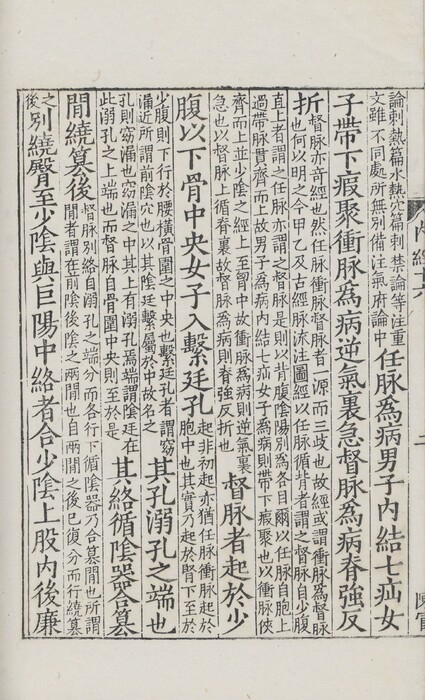 論刺熱篇水熱穴篇刺禁論等注重
文雖不同處所無別備注氣府論中
任脉為病男子內結七疝女
子帶下瘕聚衝脉為病逆氣裏急督脉為病脊強反
折
督脉亦竒經也然任脉衝脉督脉者一源而三歧也故經或謂衝脉為督脉
也何以明之今甲乙及古經脉流注圖經以任脉循背者謂之督脉自少腹
直上者謂之任脉亦謂之督脉是則以背腹陰陽別為各目爾以任脉自胞上
過帶脉貫齊而上故男子為病內結七疝女子為病則帶下瘕聚也以衝脉俠
齊而上並少陰之經上至胷中故衝脉為病則逆氣裏
急也以督脉上循脊裏故督脉為病則脊強反折也
督脉者起於少
腹以下骨中央女子入繫廷孔
起非初起亦猶任脉衝脉起於
胞中也其實乃起於腎下至於
少腹則下行於腰橫骨圍之中央也繫廷孔者謂窈
漏近所謂前陰穴也以其陰廷繫屬於中故名之
其孔溺孔之端也
孔則窈漏也窈漏之中其上有溺孔焉端謂陰廷在
此溺孔之上端也而督脉自骨圍中央則至於是
其絡循陰器合篡
間繞篡後
督脉別絡自溺孔之端分而各行下循陰器乃合篡間也所謂
間者謂在前陰後陰之兩間也自兩間之後已復分而行繞篡
之
後
別繞臀至少陰與巨陽中絡者合少陰上股內後廉